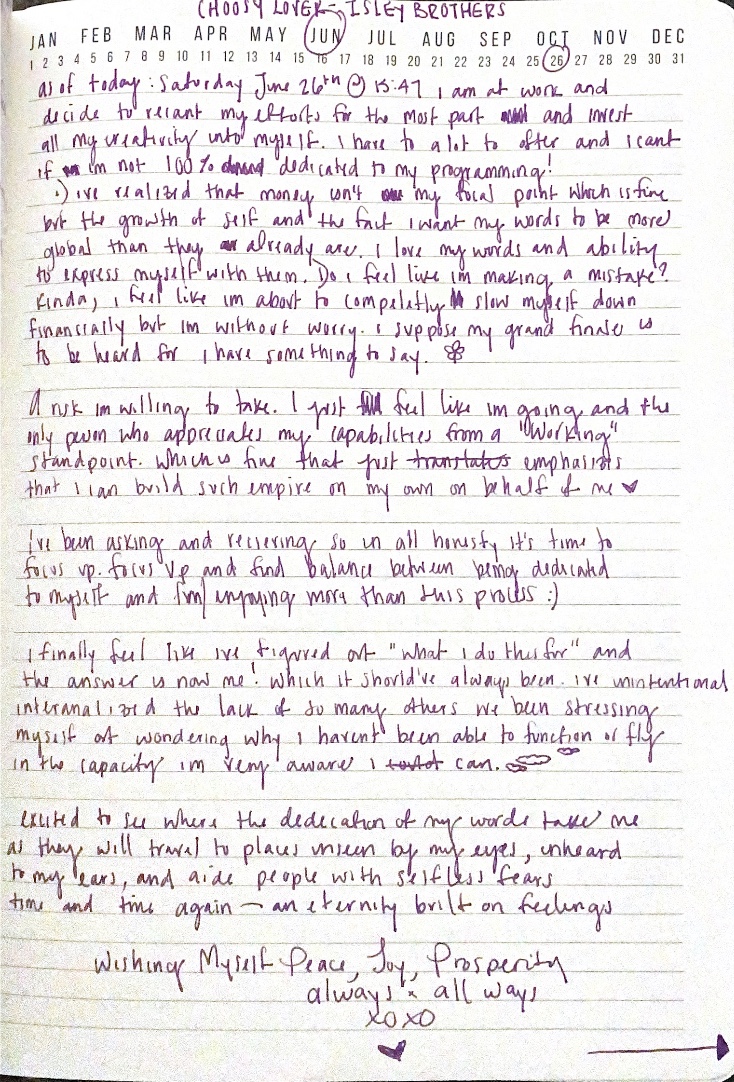 CHOOSY LOVER - ISLEY BROTHERS
JAN FEB MAR APR MAY JUN JUL AUG SEP OCT NOV DEC
1 2 3 4 5 6 7 8 9 10 11 12 13 14 15 16 17 18 19 20 21 22 23 24 25 26 27 28 29 30 31
as of today: Saturday June 26th @ 15:47 I am at work and
decide to recant my efforts for the most part and invest
all my creativity into myself. I have to a lot to offer and I cant
if im not 100% dedicated to my programming!
:) ive realized that money isn't my focal point which is fine
but the growth of self and the fact I want my words to be more
global than they already are. I love my words and ability
to express myself with them. Do I feel like im making a mistake?
Kinda, I feel like im about to compelatly slow myself down
financially but im without worry. I suppose my grand finale is
to be heard for I have something to say.
A risk im willing to take. I just feel like im going and the
only person who appreciates my capabilities from a "Working"
standpoint. which is fine that just translates emphasists
that I can build such empire on my own on behalf of me ♥
I've been asking and recieving so in all honesty it's time to
focus up. focus up and find balance between being dedicated
to myself and I'm enjoying more than this process :)
I finally feel like ive figured out "what I do this for" and
the answer is now me! which it should've always been. ive unintentional
internalized the lack of so many others ive been stressing
myself out wondering why I haven't been able to function or fly
in the capacity im very aware I can.
excited to see where the dedecation of my words take me
as they will travel to places unseen by my eyes, unheard
to my ears, and aide people with selfless fears
time and time again — an eternity built on feelings
Wishing Myself Peace, Joy, Prosperity
always × all ways
xoxo
♥